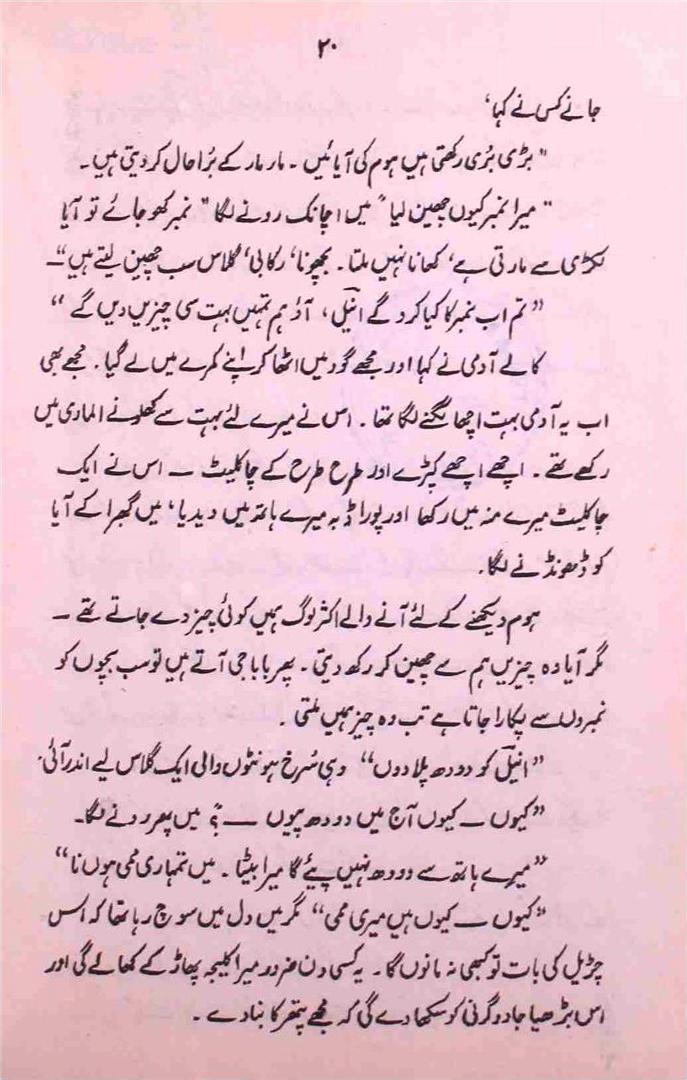 ۲۰
جانے کس نے کہا،
"بڑی بُری رکھتی ہیں ہوم کی آیائیں۔ مار مار کے بُرا حال کر دیتی ہیں۔
"میرا نمبر کیوں چھین لیا" میں اچانک رونے لگا "نمبر کھو جائے تو آیا
لکڑی سے مارتی ہے، کھانا نہیں ملتا۔ بچھونا، رکابی، گلاس سب چھین لیتے ہیں"۔
"تم اب نمبر کا کیا کرو گے انیلؔ، آؤ ہم تمہیں بہت سی چیزیں دیں گے"
کالے آدمی نے کہا اور مجھے گود میں اٹھا کر اپنے کمرے میں لے گیا۔ مجھے بھی
اب یہ آدمی بہت اچھا لگنے لگا تھا۔ اس نے میرے لئے بہت سے کھلونے الماری میں
رکھے تھے۔ اچھے اچھے کپڑے اور طرح طرح کے چاکلیٹ — اس نے ایک
چاکلیٹ میرے منہ میں رکھا اور پورا ڈبہ میرے ہاتھ میں دیدیا، میں گھبرا کے آیا
کو ڈھونڈنے لگا۔
ہوم دیکھنے کے لئے آنے والے اکثر لوگ ہمیں کوئی چیز دے جاتے تھے —
مگر آیا وہ چیزیں ہم سے چھین کر رکھ دیتی۔ پھر باباجی آتے ہیں تو سب بچوں کو
نمبروں سے پکارا جاتا ہے تب وہ چیز ہمیں ملتی۔
"انیلؔ کو دودھ پلا دوں" وہی سُرخ ہونٹوں والی ایک گلاس لیے اندر آئی۔
"کیوں — کیوں آج میں دودھ پیوں —؟" میں پھر رونے لگا۔
"میرے ہاتھ سے دودھ نہیں پیئے گا میرا بیٹا۔ میں تمہاری ممی ہوں نا"
"کیوں — کیوں ہیں میری ممی" مگر میں دل میں سوچ رہا تھا کہ اس
چڑیل کی بات تو کبھی نہ مانوں گا۔ یہ کسی دن ضرور میرا کلیجہ پھاڑ کے کھا لے گی اور
اس بڑھیا جادوگرنی کو سکھا دے گی کہ مجھے پتھر کا بنا دے۔